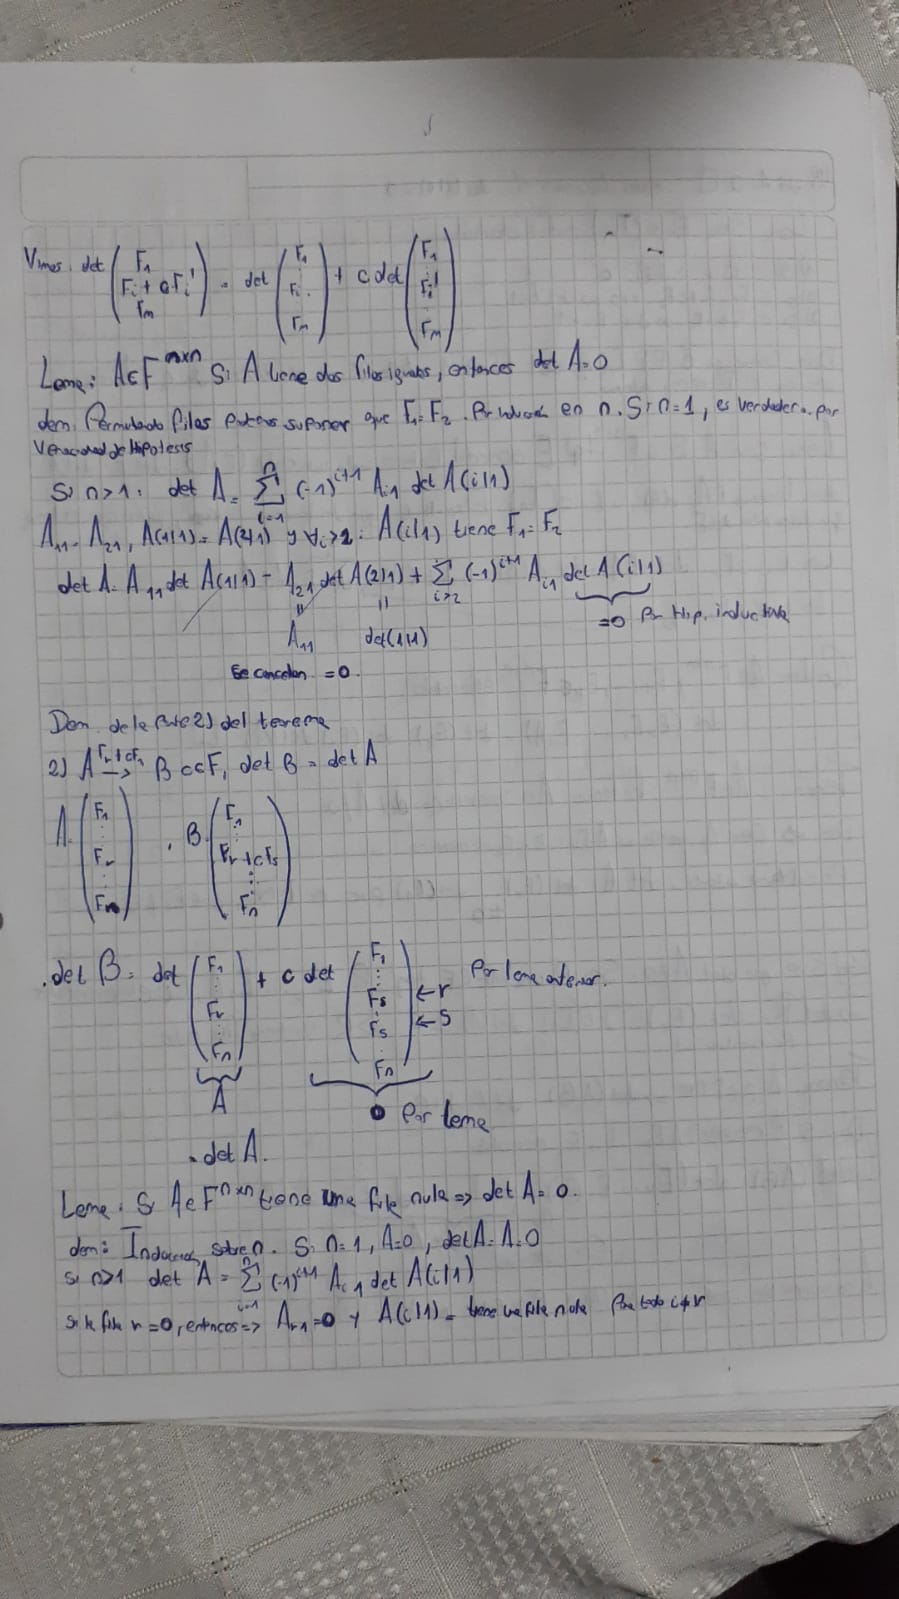 Vimos. det (F₁ Fᵢ + cFᵢ' Fₘ) = det (F₁ ⋮ Fᵢ ⋮ Fₘ) + c det (F₁ ⋮ Fᵢ' ⋮ Fₘ)
Leme: A∈F^{n×n} Si A tiene dos filas iguales, entonces det A=0
dem. Permutando filas podemos suponer que F₁=F₂. Por inducción en n. Si n=1, es verdadera por
Veracidad de Hipotesis
Si n>1. det A = Σ_{i=1}^{n} (-1)^{i+1} Aᵢ₁ det A(i|1)
A₁₁ = A₂₁, A(1|1) = A(2|1) y ∀i>2: A(i|1) tiene F₁=F₂
det A = A₁₁ det A(1|1) - A₂₁ det A(2|1) + Σ_{i>2} (-1)^{i+1} Aᵢ₁ det A(i|1)
A₁₁ det(1|1) =0 Por Hip. inductiva
Se cancelan =0.
Dem. de la parte 2) del teorema
2) A →^{Fᵣ+cFₛ} B c∈F, det B = det A
A = (F₁ ⋮ Fᵣ ⋮ Fₙ) , B = (F₁ ⋮ Fᵣ+cFₛ ⋮ Fₙ)
det B = det (F₁ ⋮ Fᵣ ⋮ Fₙ) + c det (F₁ ⋮ Fₛ Fₛ ⋮ Fₙ) ←r ←s Por leme anterior.
A 0 Por leme
= det A.
Leme: Si A∈F^{n×n} tiene una fila nula => det A = 0.
dem: Inducción sobre n. Si n=1, A=0, det A=A=0
si n>1 det A = Σ_{i=1}^{n} (-1)^{i+1} Aᵢ₁ det A(i|1)
si la fila r=0, entonces => Aᵣ₁=0 y A(i|1) = tiene una fila nula Para todo i≠r